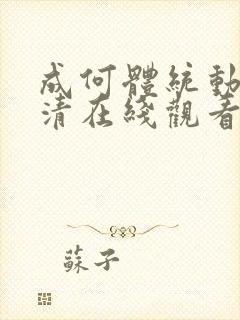 成何體統動
清在綫觀看
蘇子